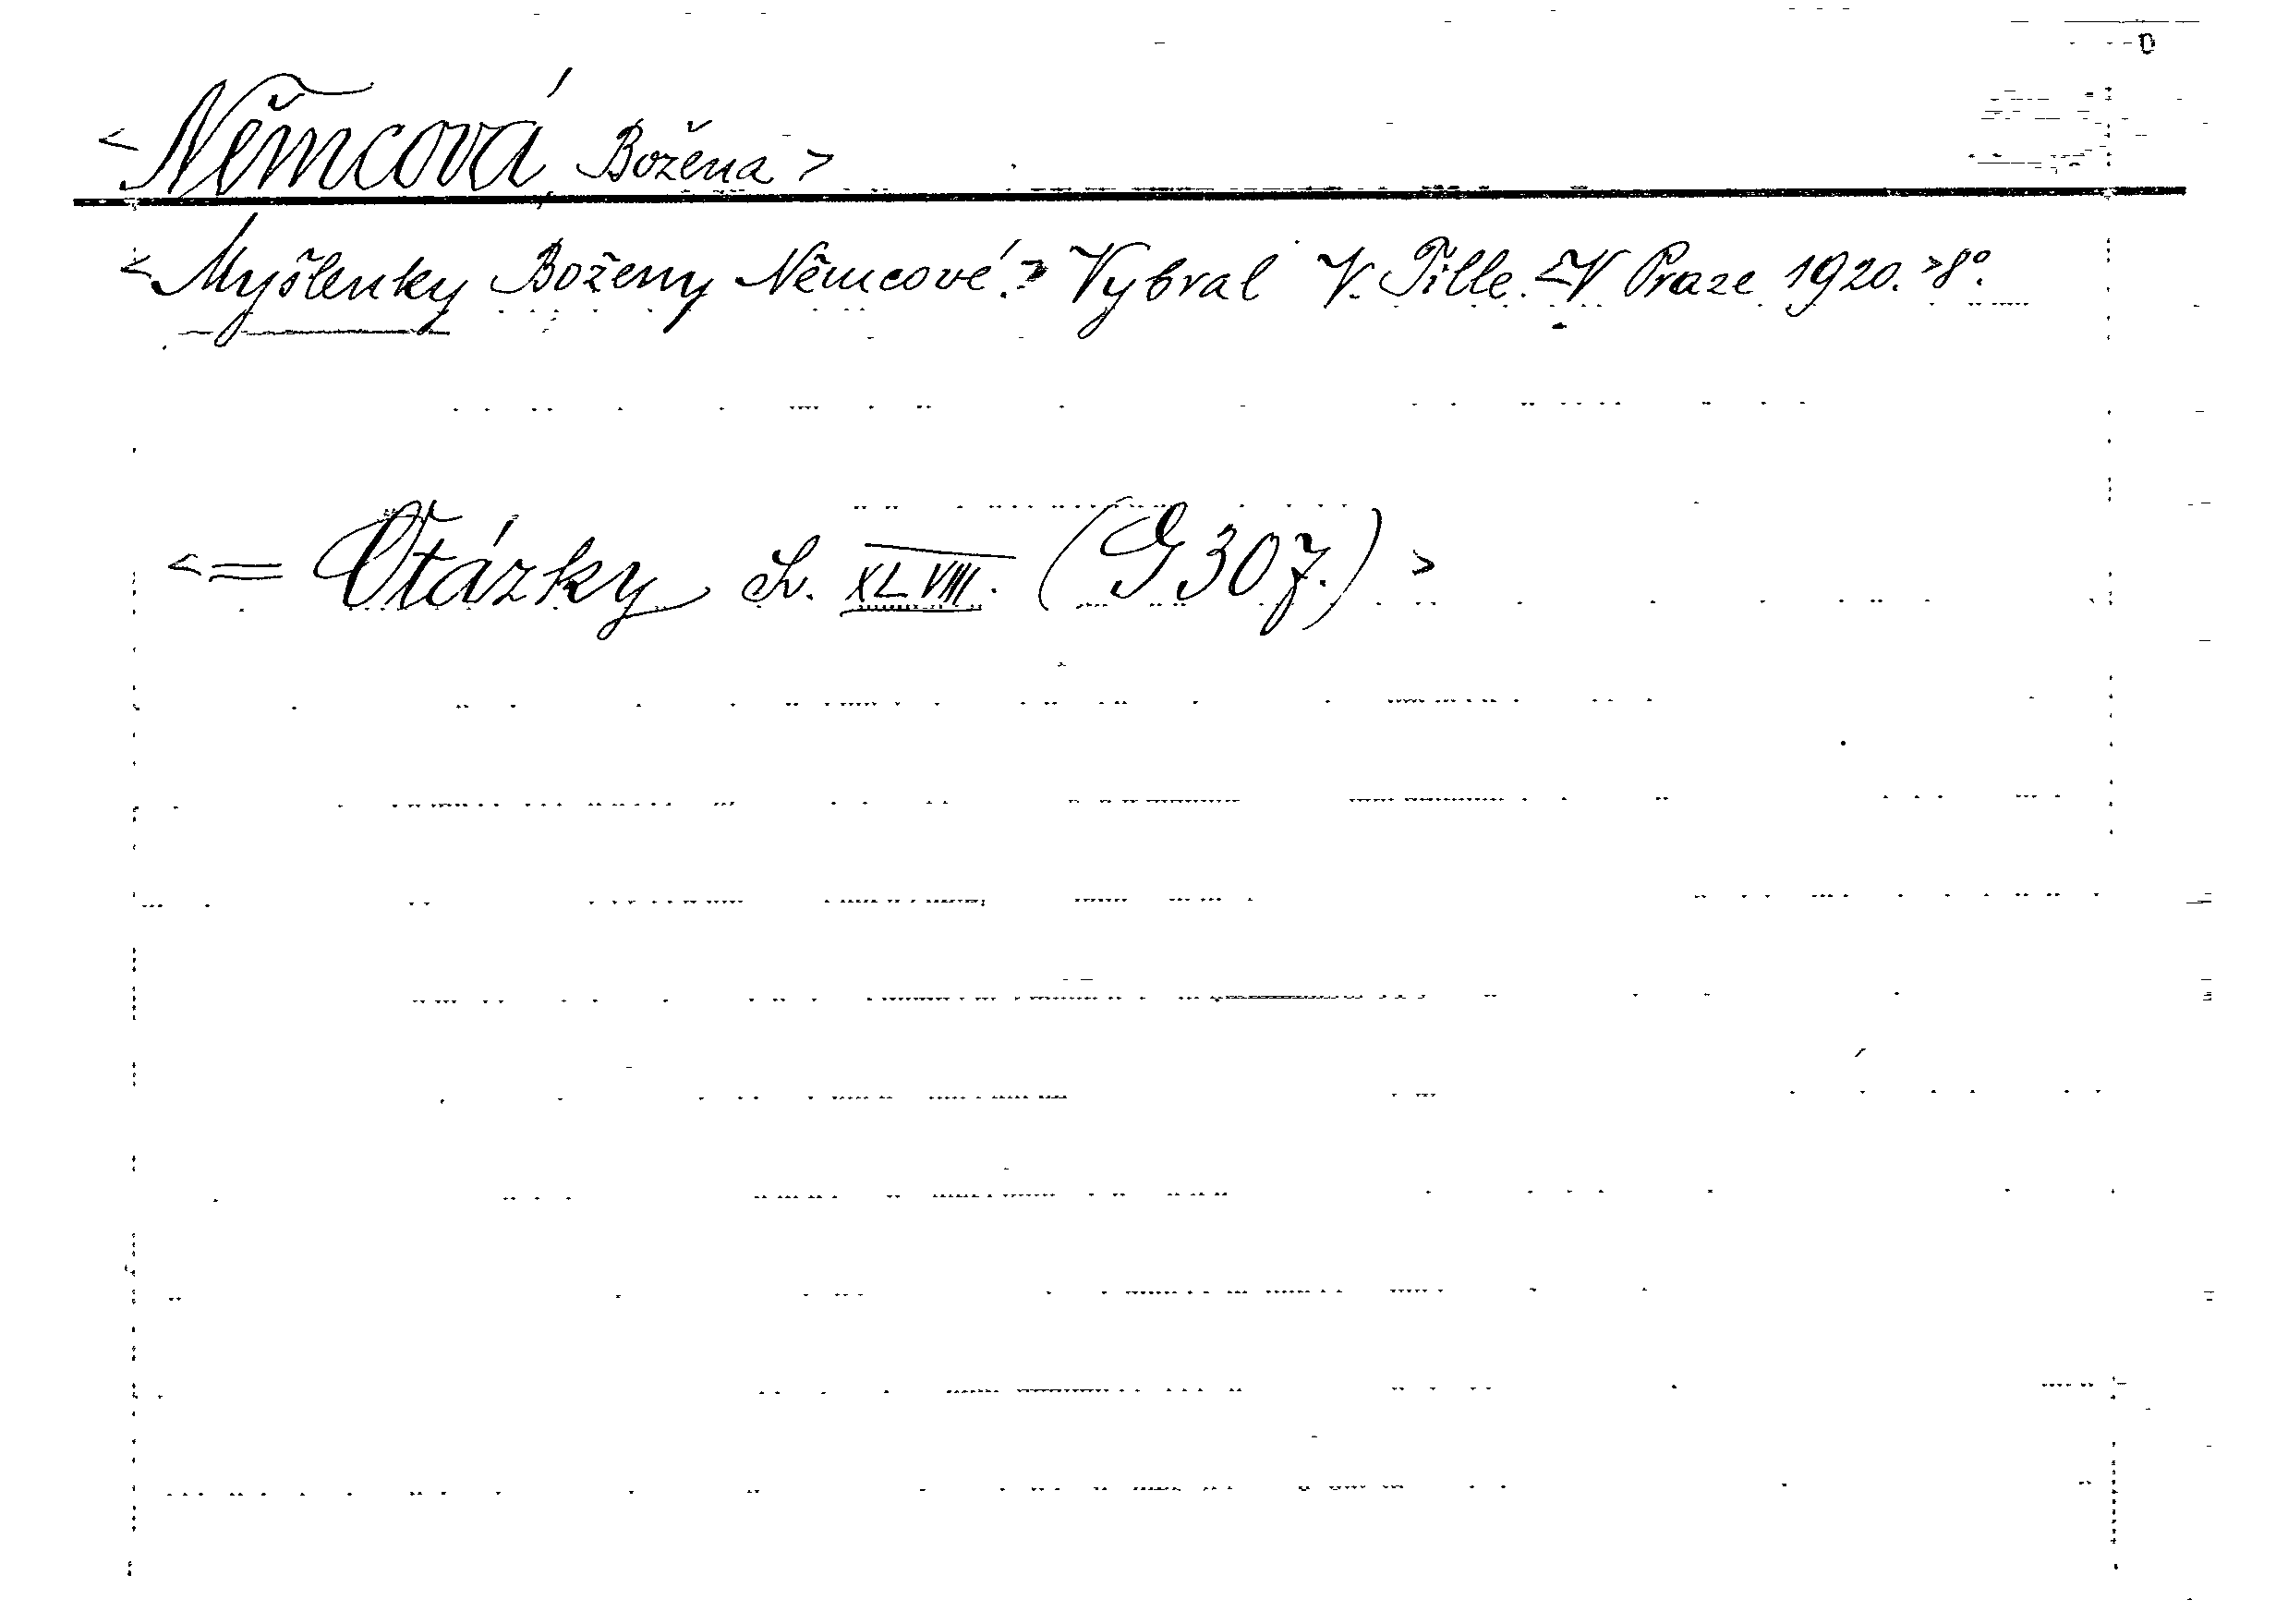 <Němcová, Božena>
<Myšlenky Boženy Němcové.> Vybral V. Tille. <V Praze 1920.> 8°.
<= Otázky sv. XLVIII. (G 307.)>